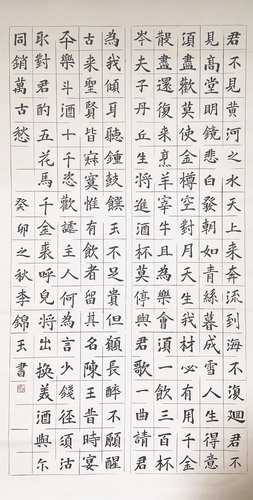 君不見黄河之水天上來奔流到海不復迴君不
見高堂明鏡悲白發朝如青絲暮成雪人生得意
須盡歡莫使金樽空對月天生我材必有用千金
散盡還復來烹羊宰牛且為樂會須一飲三百杯
岑夫子丹丘生將進酒杯莫停與君歌一曲請君
為我傾耳聽鐘鼓饌玉不足貴但願長醉不願醒
古來聖賢皆寂寞惟有飲者留其名陳王昔時宴
平樂斗酒十千恣歡謔主人何為言少錢徑須沽
取對君酌五花馬千金裘呼兒將出換美酒與尔
同銷萬古愁 癸卯之秋李錦玉書